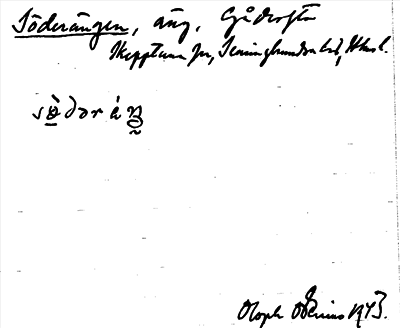 Söderängen, äng, Gåderska
Skepptuna sn, Seminghundra hd, Uhl.
Oloph Odenius 1943.